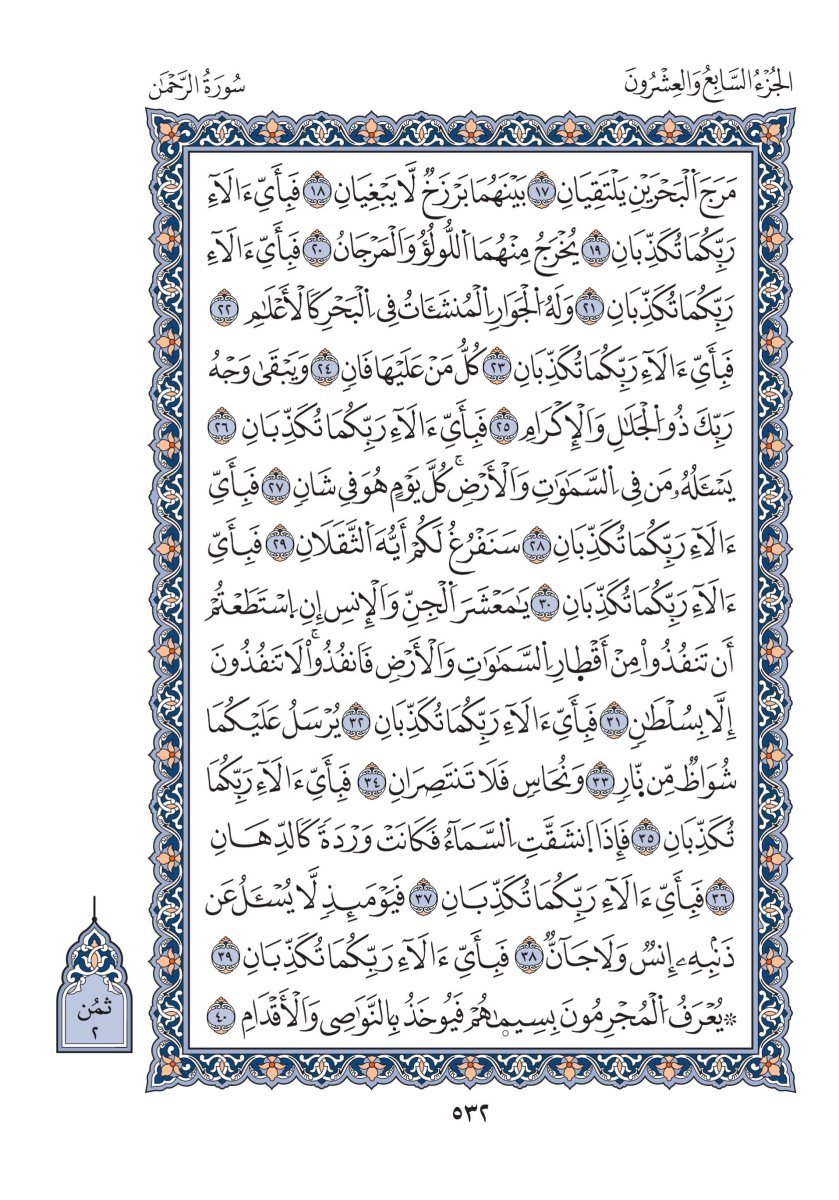 الجُزْءُ السَّابِعُ وَالعِشْرُونَ
سُورَةُ الرَّحْمَٰن
مَرَجَ اَلْبَحْرَيْنِ يَلْتَقِيَانِ ١٧ بَيْنَهُمَا بَرْزَخٌ لَّا يَبْغِيَانِ ١٨ فَبِأَيِّ ءَالَآءِ
رَبِّكُمَا تُكَذِّبَانِ ١٩ يُخْرَجُ مِنْهُمَا اَللُّولُؤُ وَالْمَرْجَانُ ٢٠ فَبِأَيِّ ءَالَآءِ
رَبِّكُمَا تُكَذِّبَانِ ٢١ وَلَهُ اُلْجَوَارِ اِلْمُنشَـَٔاتُ فِي اِلْبَحْرِ كَالْأَعْلَٰمِ ٢٢
فَبِأَيِّ ءَالَآءِ رَبِّكُمَا تُكَذِّبَانِ ٢٣ كُلُّ مَنْ عَلَيْهَا فَانٍ ٢٤ وَيَبْقَىٰ وَجْهُ
رَبِّكَ ذُو اُلْجَلَٰلِ وَالْإِكْرَامِ ٢٥ فَبِأَيِّ ءَالَآءِ رَبِّكُمَا تُكَذِّبَانِ ٢٦
يَسْـَٔلُهُۥ مَن فِي اِلسَّمَٰوَٰتِ وَالْأَرْضِۚ كُلَّ يَوْمٍ هُوَ فِي شَانٍ ٢٧ فَبِأَيِّ
ءَالَآءِ رَبِّكُمَا تُكَذِّبَانِ ٢٨ سَنَفْرُغُ لَكُمْ أَيُّهَ اَلثَّقَلَانِ ٢٩ فَبِأَيِّ
ءَالَآءِ رَبِّكُمَا تُكَذِّبَانِ ٣٠ يَٰمَعْشَرَ اَلْجِنِّ وَالْإِنسِ إِنِ اِسْتَطَعْتُمْ
أَن تَنفُذُواْ مِنْ أَقْطَارِ اِلسَّمَٰوَٰتِ وَالْأَرْضِ فَانفُذُواْۚ لَا تَنفُذُونَ
إِلَّا بِسُلْطَٰنٍ ٣١ فَبِأَيِّ ءَالَآءِ رَبِّكُمَا تُكَذِّبَانِ ٣٢ يُرْسَلُ عَلَيْكُمَا
شُوَاظٌ مِّن نَّارٍ ٣٣ وَنُحَاسٍ فَلَا تَنتَصِرَانِ ٣٤ فَبِأَيِّ ءَالَآءِ رَبِّكُمَا
تُكَذِّبَانِ ٣٥ فَإِذَا اَنشَقَّتِ اِلسَّمَآءُ فَكَانَتْ وَرْدَةً كَالدِّهَانِ
٣٦ فَبِأَيِّ ءَالَآءِ رَبِّكُمَا تُكَذِّبَانِ ٣٧ فَيَوْمَئِذٍ لَّا يُسْـَٔلُ عَن
ذَنۢبِهِۦ إِنسٌ وَلَا جَآنٌّ ٣٨ فَبِأَيِّ ءَالَآءِ رَبِّكُمَا تُكَذِّبَانِ ٣٩
۞يُعْرَفُ اُلْمُجْرِمُونَ بِسِيمَٰهُمْ فَيُوخَذُ بِالنَّوَٰصِي وَالْأَقْدَامِ ٤٠
ثمُن
٢
٥٣٢